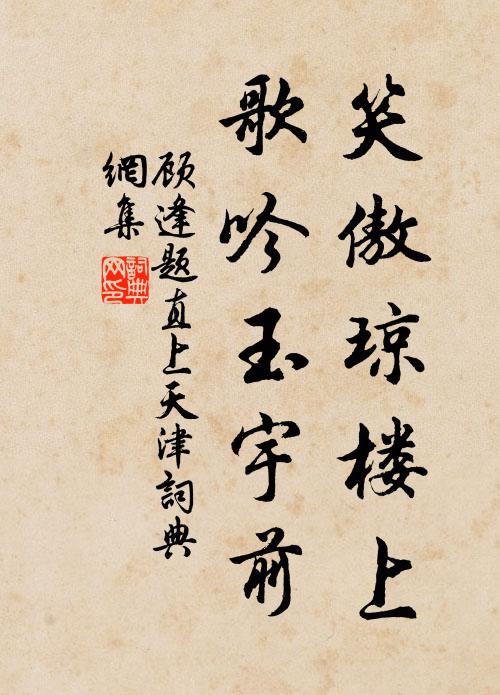 笑傲琼楼上
歌吟玉宇前
顾逢题直上天津詞典
網集
詞典
网印